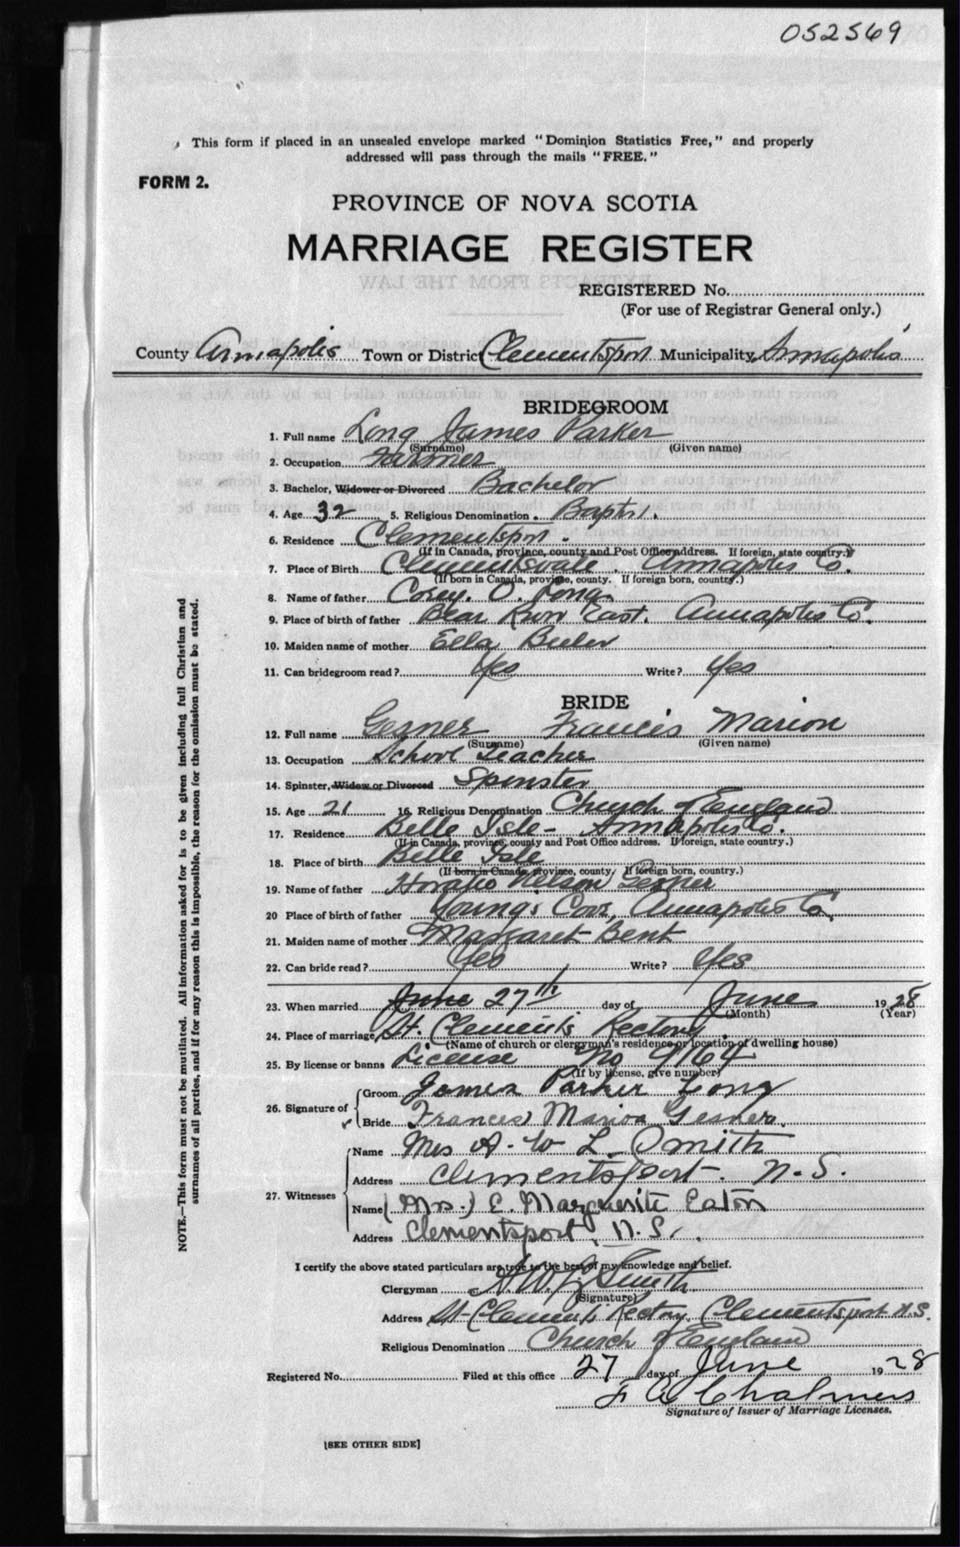 052569
This form if placed in an unsealed envelope marked "Dominion Statistics Free," and properly
addressed will pass through the mails "FREE."
FORM 2.
PROVINCE OF NOVA SCOTIA
MARRIAGE REGISTER
REGISTERED No.
(For use of Registrar General only.)
County Annapolis Town or District Clementsport Municipality Annapolis
BRIDEGROOM
1. Full name Long James Parker
(Surname) (Given name)
2. Occupation Farmer
3. Bachelor, Widower or Divorced Bachelor
4. Age 32 5. Religious Denomination Baptist.
6. Residence Clementsport.
(If in Canada, province, county and Post Office address. If foreign, state country.)
7. Place of Birth Clementsvale. Annapolis Co.
(If born in Canada, province, county. If foreign born, country.)
8. Name of father O. Long.
9. Place of birth of father Bear River East. Annapolis Co.
10. Maiden name of mother Ella
11. Can bridegroom read? Yes Write? Yes
BRIDE
12. Full name Gesner Francis Marion
(Surname) (Given name)
13. Occupation School Teacher
14. Spinster, Widow or Divorced Spinster
15. Age 21 16. Religious Denomination Church of England
17. Residence Belle Isle - Annapolis Co.
(If in Canada, province, county and Post Office address. If foreign, state country.)
18. Place of birth Belle Isle
(If born in Canada, province, county. If foreign born, country.)
19. Name of father Horatio Nelson Gesner
20 Place of birth of father Youngs Cove, Annapolis Co.
21. Maiden name of mother Margaret Bent
22. Can bride read? Yes Write? Yes
23. When married June 27th day of June 1928
(Month) (Year)
24. Place of marriage St. Clement's Rectory.
(Name of church or clergyman's residence or location of dwelling house)
25. By license or banns License No 9164
(If by license, give number)
26. Signature of Groom James Parker Long
Bride Frances Marion Gesner.
27. Witnesses Name Mrs A. W L. Smith
Address Clementsport. N.S.
Name (Mrs.) E. Marguerite Eaton
Address Clementsport, N.S.
I certify the above stated particulars are true to the best of my knowledge and belief.
Clergyman A W L Smith
(Signature)
Address St Clements Rectory, Clementsport N.S.
Religious Denomination Church of England
Registered No. Filed at this office 27 day of June 1928
F A Chalmers
Signature of Issuer of Marriage Licenses.
[SEE OTHER SIDE]
NOTE.—This form must not be mutilated. All information asked for is to be given including full Christian and
surnames of all parties, and if for any reason this is impossible, the reason for the omission must be stated.